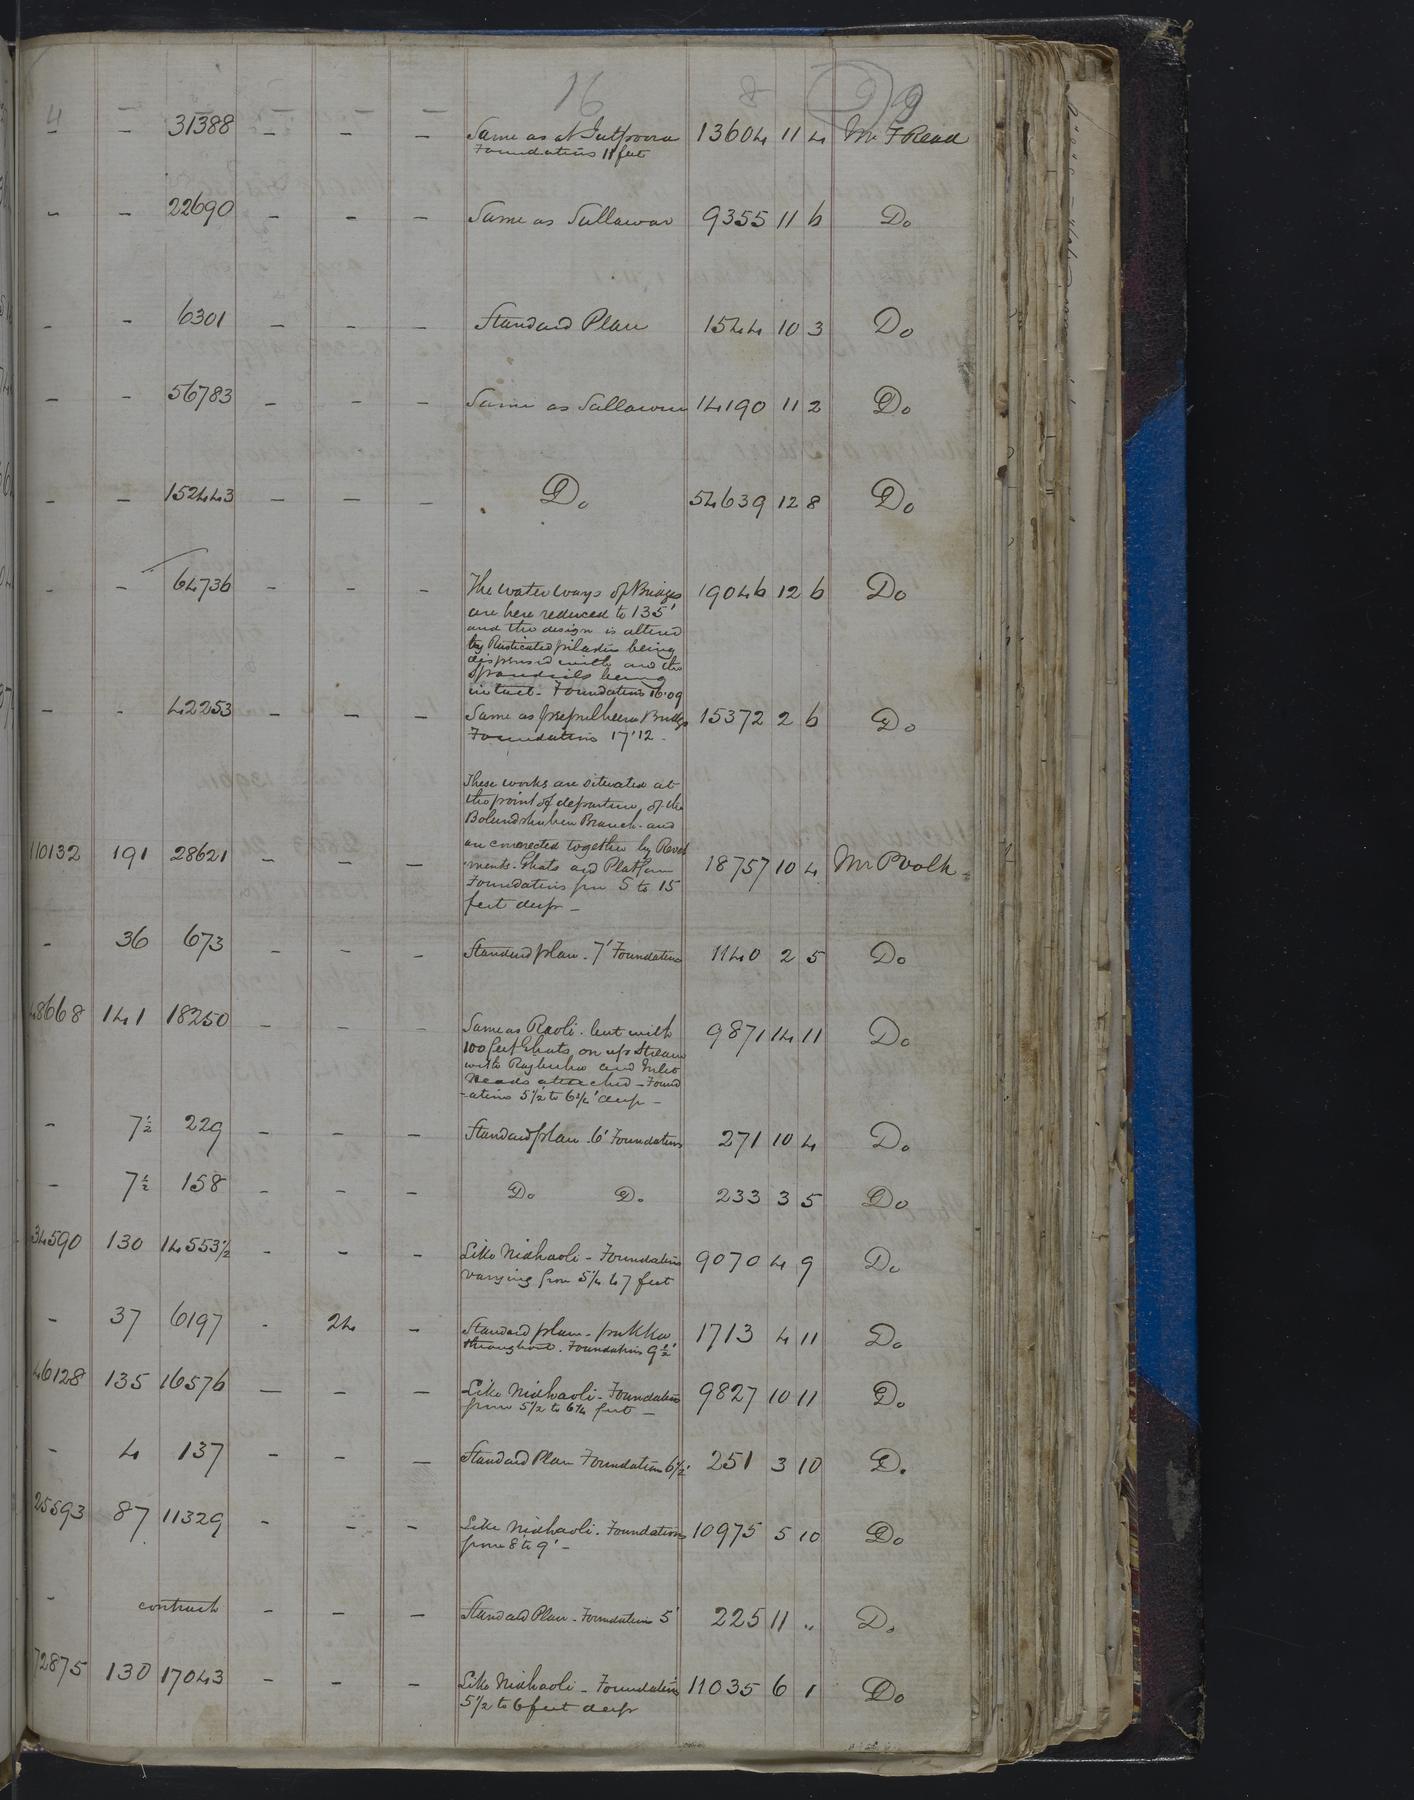 16 8 9
4 — — — —
- - 31388 - - - Same as at Jutpoora 13604 11 4 Mr F Read
Foundations 11 feet
- - 22690 - - - Same as Sallawar 9355 11 6 Do
- - 6301 - - - Standard Plan 1544 10 3 Do
- - 56783 - - - Same as Sallawar 14190 11 2 Do
- - 152443 - - - Do 54639 12 8 Do
- - 64736 - - - The water ways of Bridges 19046 12 6 Do
are here reduced to 135'
and the design is altered
by Rusticated pilasters being
dispensed with and the
Spandrils being
intact - Foundations 16.09
- - 42253 - - - Same as Bridge 15372 2 6 Do
Foundations 17'12 -
These works are situated at
the point of departure, of the
Bolundshuhur Branch - and
110132 191 28621 - - - are connected together by Revet 18757 10 4 Mr Volk -
-ments - Ghats and Platform
Foundations from 5 to 15
feet deep -
- 36 673 - - - Standard plan - 7' Foundations 1140 2 5 Do
48668 141 18250 - - - Same as Raoli - but with 9871 14 11 Do
100 feet Ghats on up Stream
with Rajbuha and Inlet
Heads attached - Found
-ations 5½ to 6¼' deep -
- 7½ 229 - - - Standard plan - 6' Foundations 271 10 4 Do
- 7½ 158 - - - Do Do 233 3 5 Do
34590 130 14553½ - - - Like Nidhaoli - Foundations 9070 4 9 Do
varying from 5¼ to 7 feet
- 37 6197 - 24 - Standard plan - pukka 1713 4 11 Do
throughout - Foundations 9½'
46128 135 16576 - - - Like Nidhaoli - Foundations 9827 10 11 Do
from 5½ to 6¼ feet -
- 4 137 - - - Standard Plan Foundations 6½' 251 3 10 Do
25593 87 11329 - - - Like Nidhaoli - Foundations 10975 5 10 Do
from 8 to 9' -
- contract - - - Standard Plan - Foundations 5' 225 11 " Do
72875 130 17043 - - - Like Nidhaoli - Foundations 11035 6 1 Do
5½ to 6 feet deep